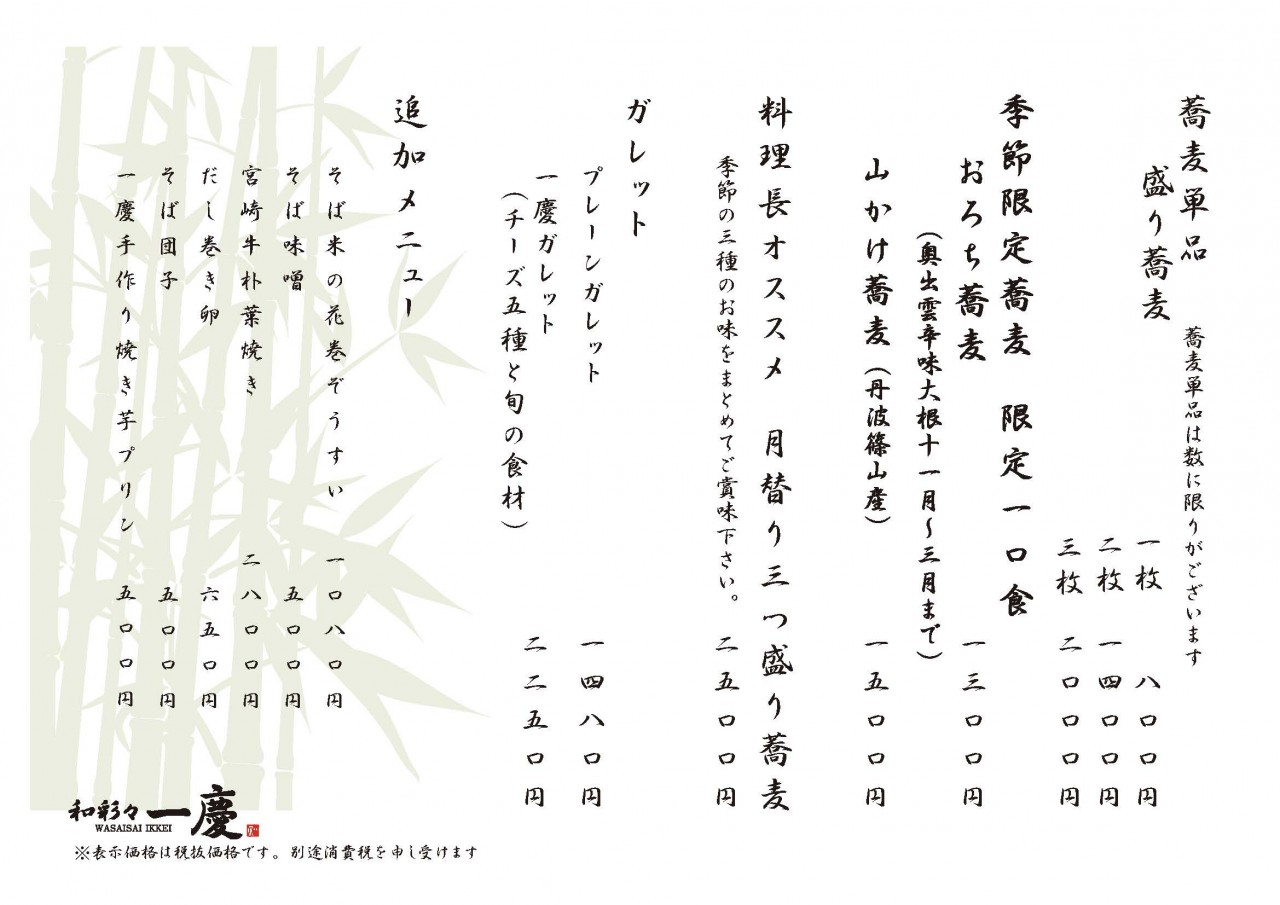 蕎麦単品　蕎麦単品は数に限りがございます
盛り蕎麦
一枚　八〇〇円
二枚　一四〇〇円
三枚　二〇〇〇円
季節限定蕎麦　限定一〇食
おろち蕎麦　一三〇〇円
（奥出雲辛味大根十一月～三月まで）
山かけ蕎麦（丹波篠山産）　一五〇〇円
料理長オススメ　月替り三つ盛り蕎麦
季節の三種のお味をまとめてご賞味下さい。　二五〇〇円
ガレット
プレーンガレット　一四八〇円
一慶ガレット　二二五〇円
（チーズ五種と旬の食材）
追加メニュー
そば米の花巻ぞうすい　一〇八〇円
そば味噌　五〇〇円
宮崎牛朴葉焼き　二八〇〇円
だし巻き卵　六五〇円
そば団子　五〇〇円
一慶手作り焼き芋プリン　五〇〇円
和彩々 一慶
WASAISAI IKKEI
※表示価格は税抜価格です。別途消費税を申し受けます